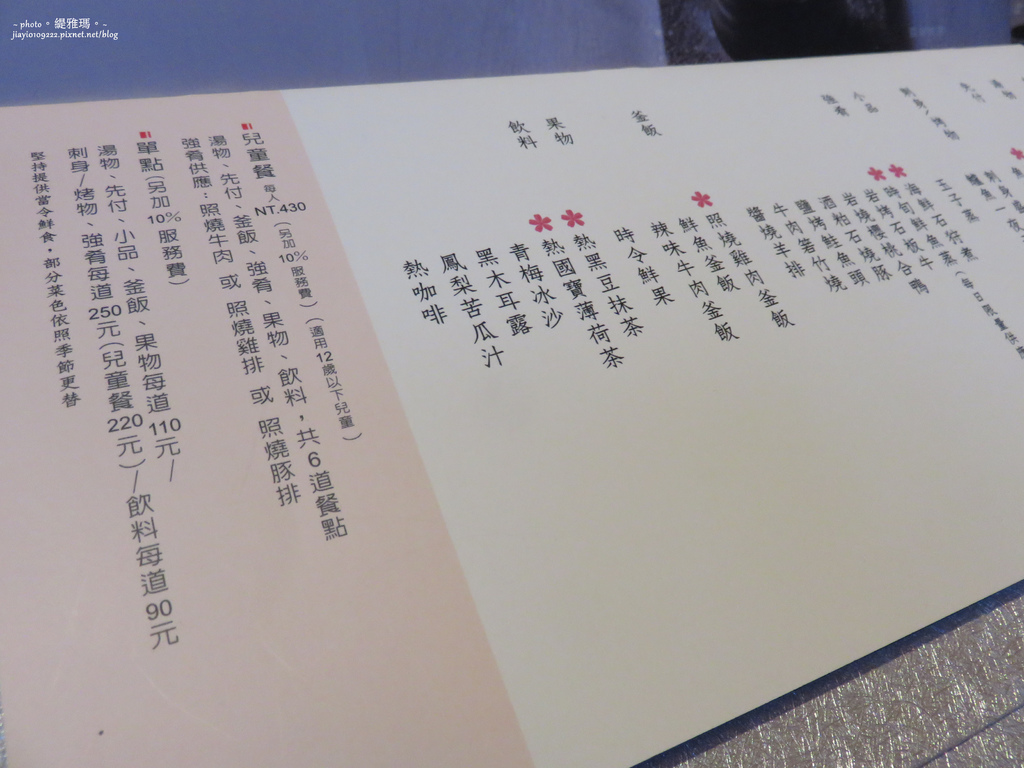 ~ photo。緹雅瑪。~
jiayi0109222.pixnet.net/blog
小品
強肴
海鮮石板燒
玉子蒸
岩燒櫻桃鴨
酒粕石燒豚
鹽烤鮭魚頭
牛肉若竹燒
醬燒羊排
釜飯
照燒雞肉釜飯
鮮魚釜飯
辣味牛肉釜飯
果物
時令鮮果
飲料
熱黑豆抹茶
熱國寶薄荷茶
青梅冰沙
黑木耳露
鳳梨苦瓜汁
熱咖啡
兒童餐 每人NT.430(另加10%服務費)(適用12歲以下兒童)
湯物、先付、釜飯、強肴、果物、飲料,共6道餐點
強肴供應:照燒牛肉 或 照燒雞排 或 照燒豚排
單點(另加10%服務費)
湯物、先付、小品、釜飯、果物每道110元/
刺身/烤物、強肴每道250元(兒童餐220元)/飲料每道90元
堅持提供當令鮮食・部分菜色依照季節更替